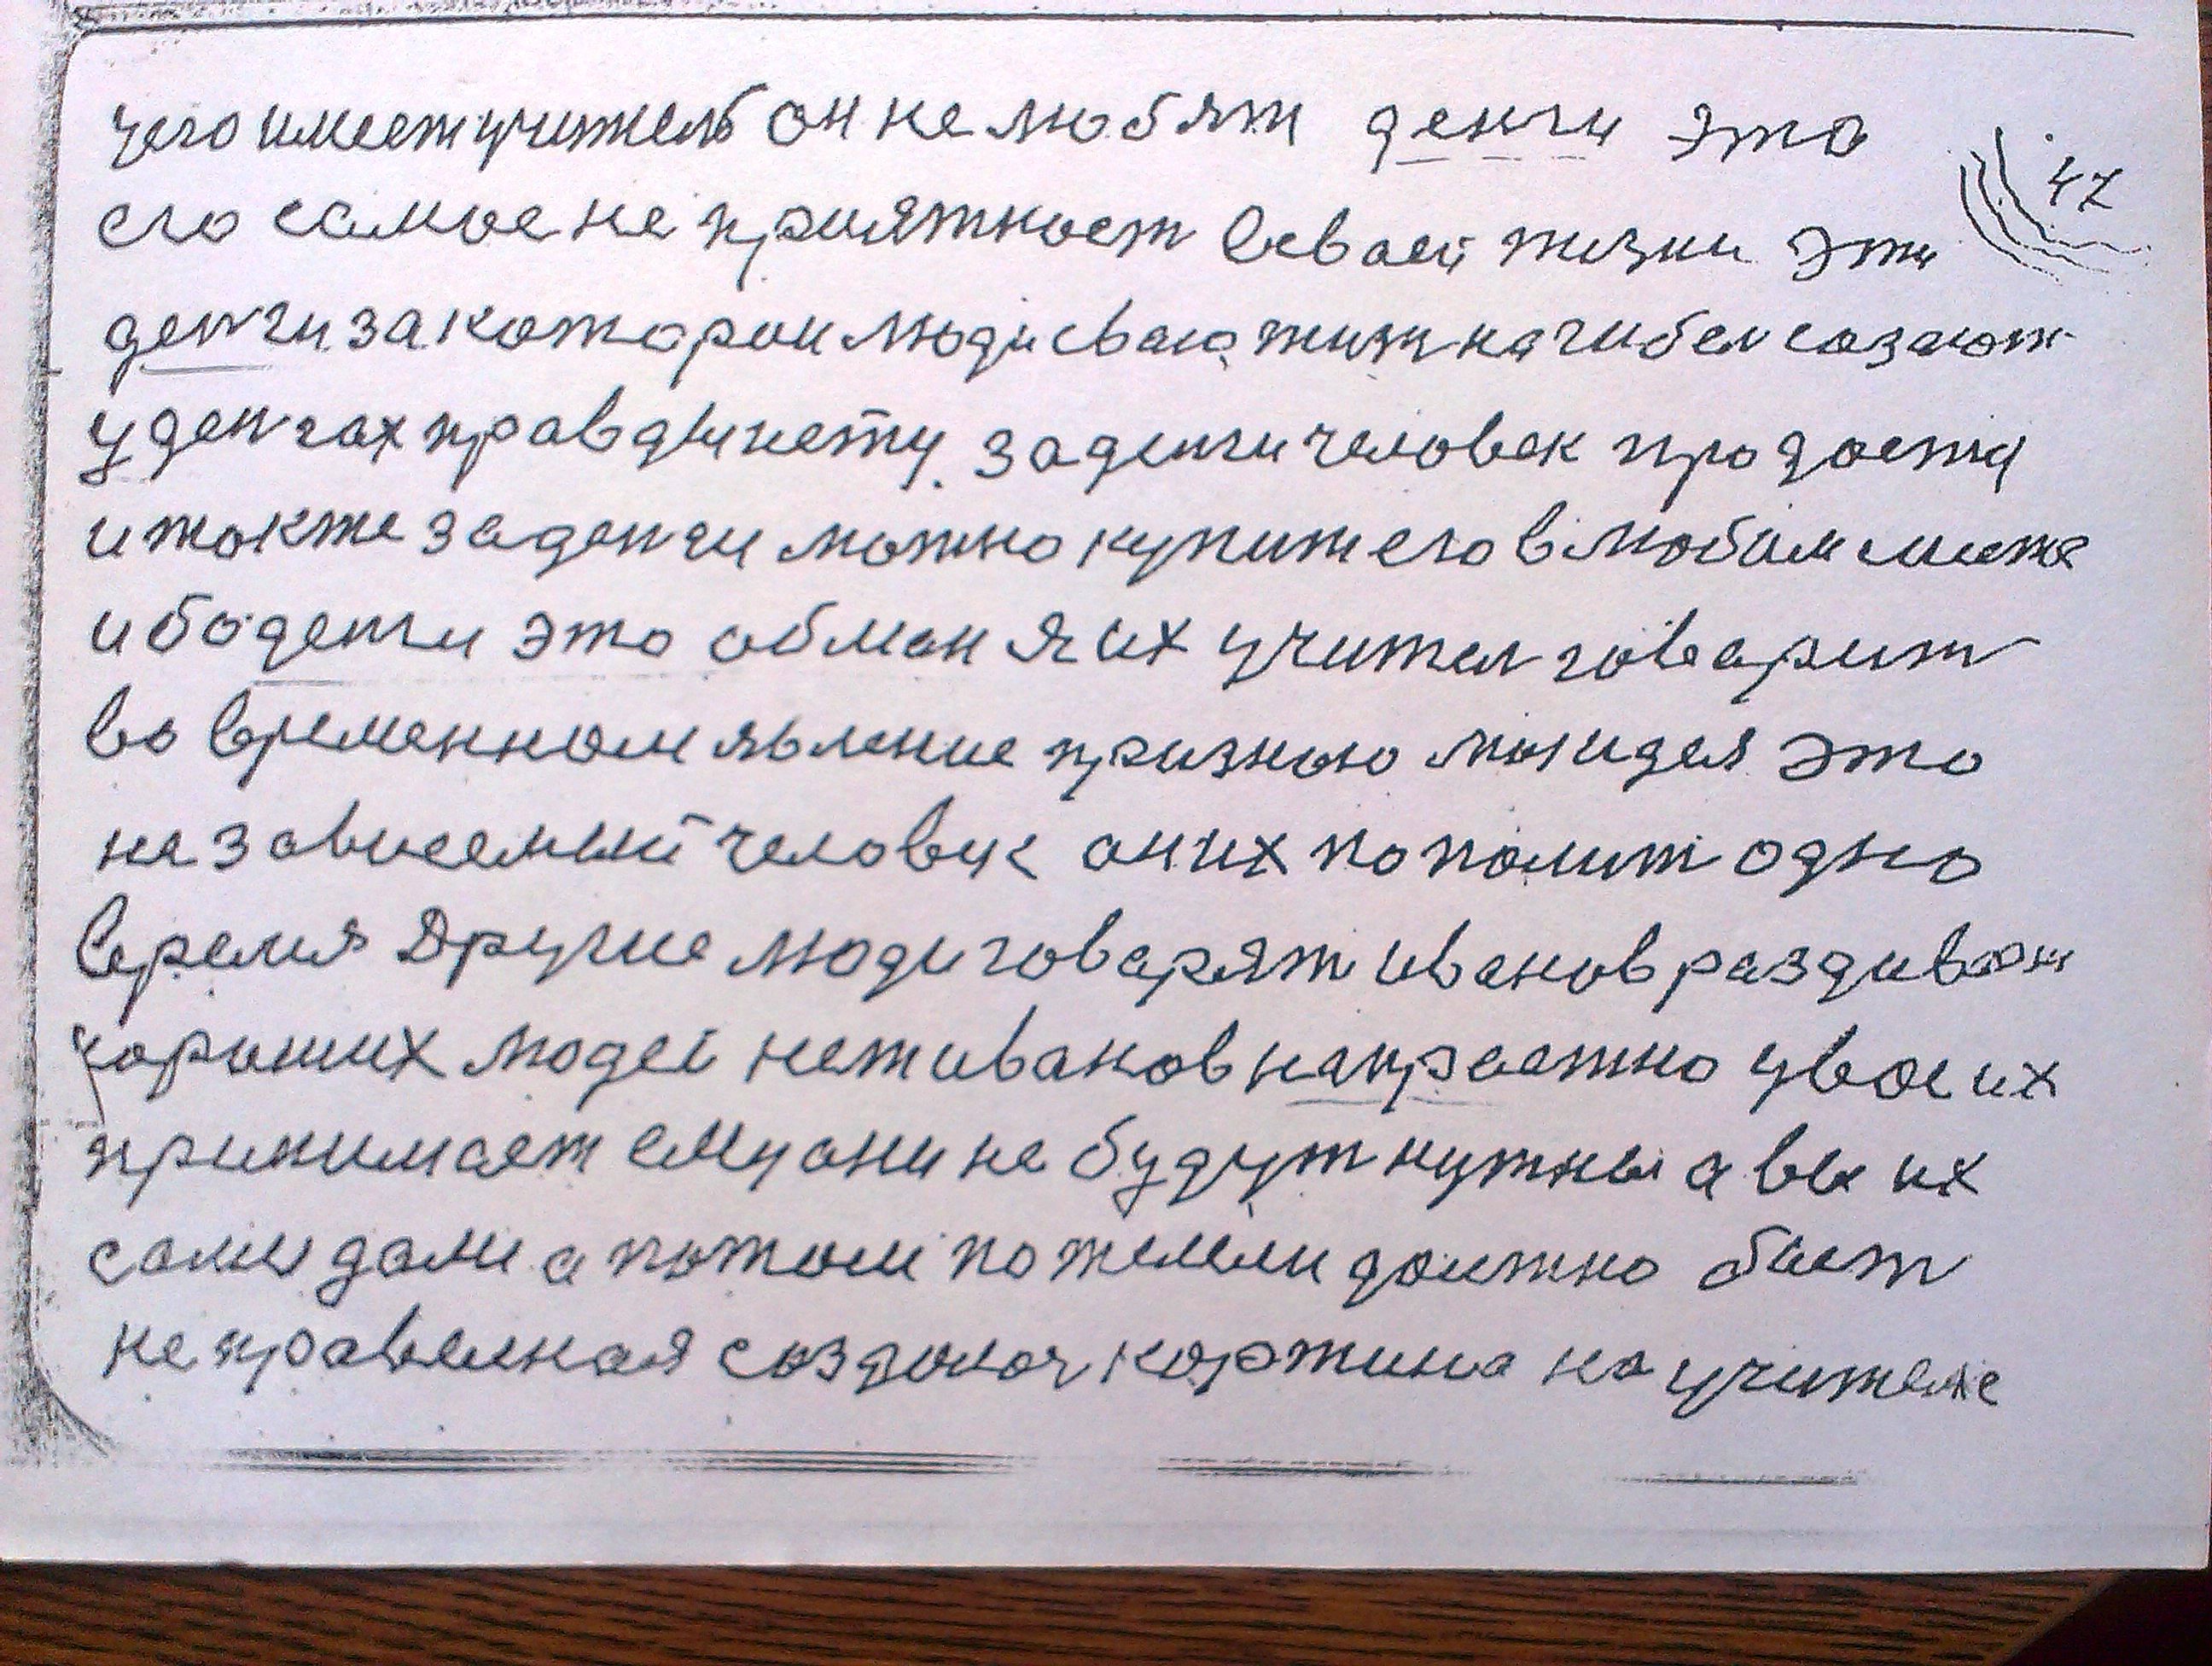 чего имеет учитель он не любят денги это
47
его самое не приятност всваей жизни эти
денги за которои люди сваю жизн на гибел создают
у денгах правды нету. за денги человек продаету
и также за денги можно купит его в любим месте
ибо денги это обман я их учител говарит
во временном явление признаю моя идея это
не зависемый человек он их пополит одно
веремя Другие люди говарят иванов раздивает
хороших людей нет иванов напрастно у вас их
принимает ему они не будут нужны а вы их
сами дали а потом пожелели должно быт
не правелная создалас картина на учителе